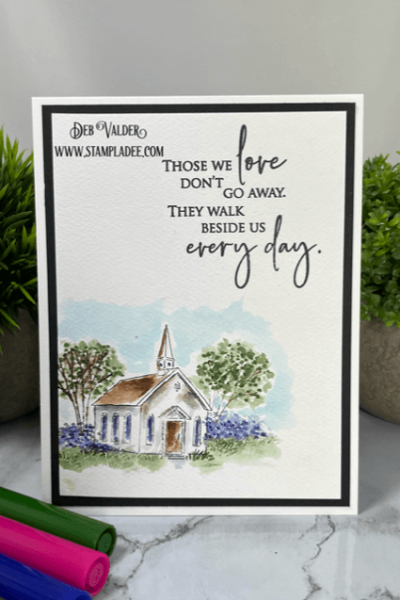 Deb Valder
www.stampladee.com
Those we love
don't
go away.
They walk
beside us
every day.